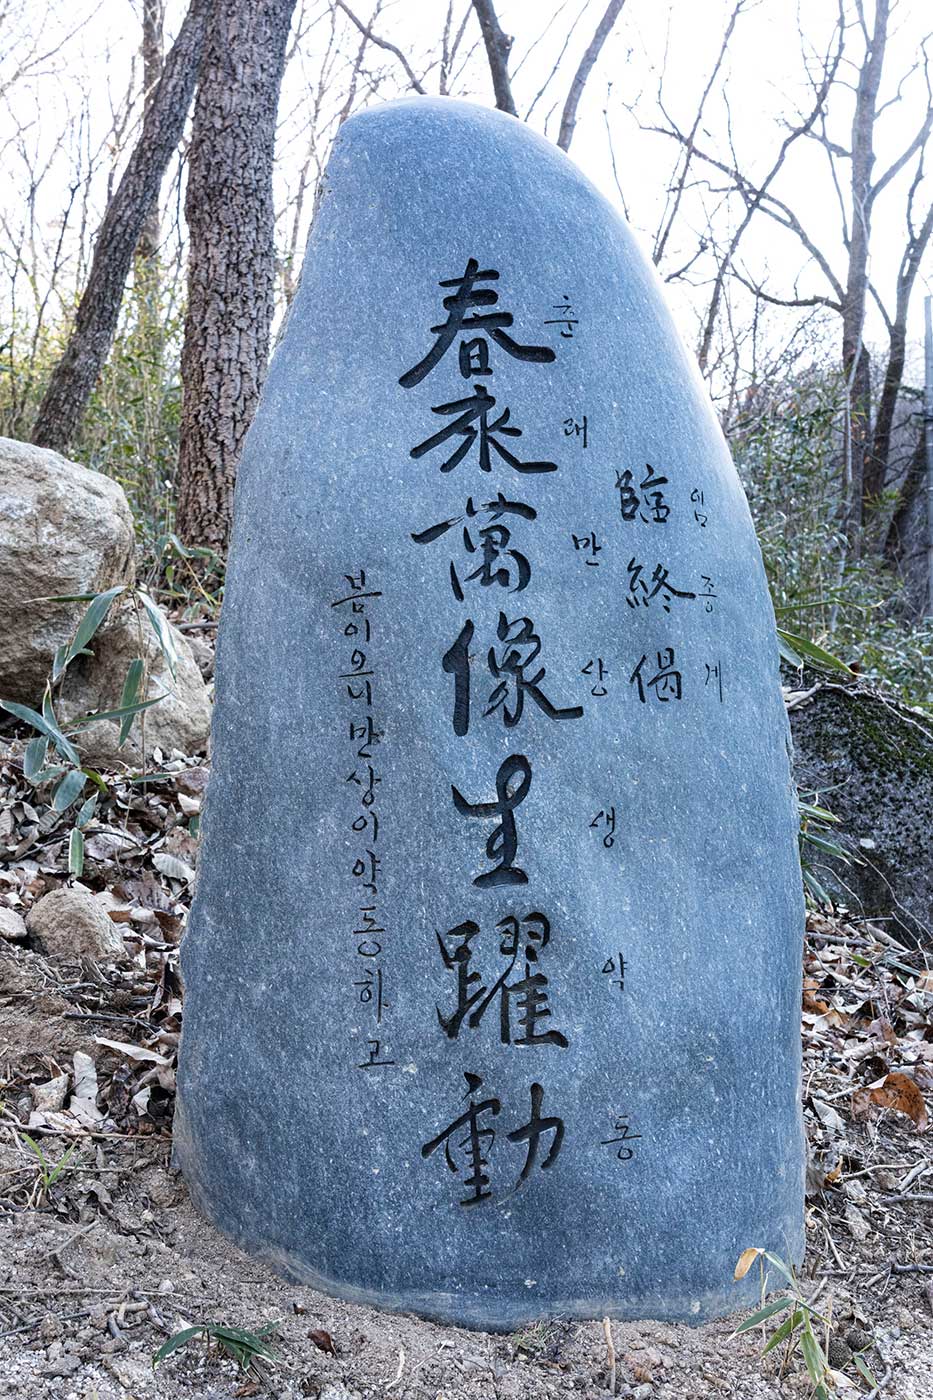 임종게
臨終偈
춘래만상생약동
春來萬像生躍動
봄이오니만상이약동하고